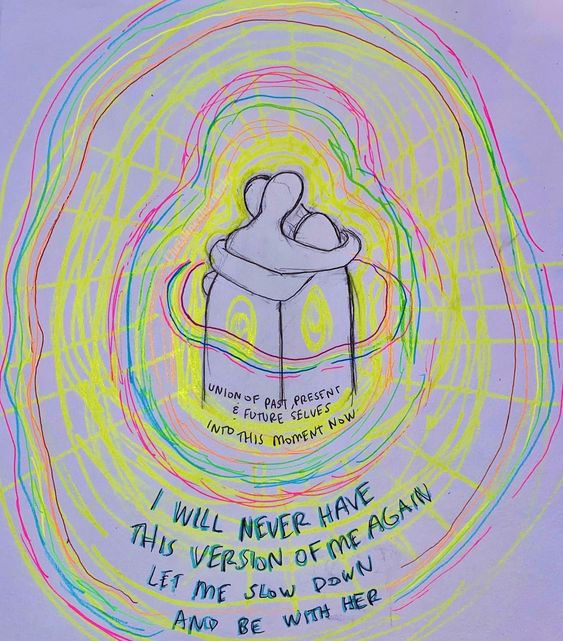 UNION OF PAST, PRESENT
& FUTURE SELVES
INTO THIS MOMENT NOW
I WILL NEVER HAVE
THIS VERSION OF ME AGAIN
LET ME SLOW DOWN
AND BE WITH HER